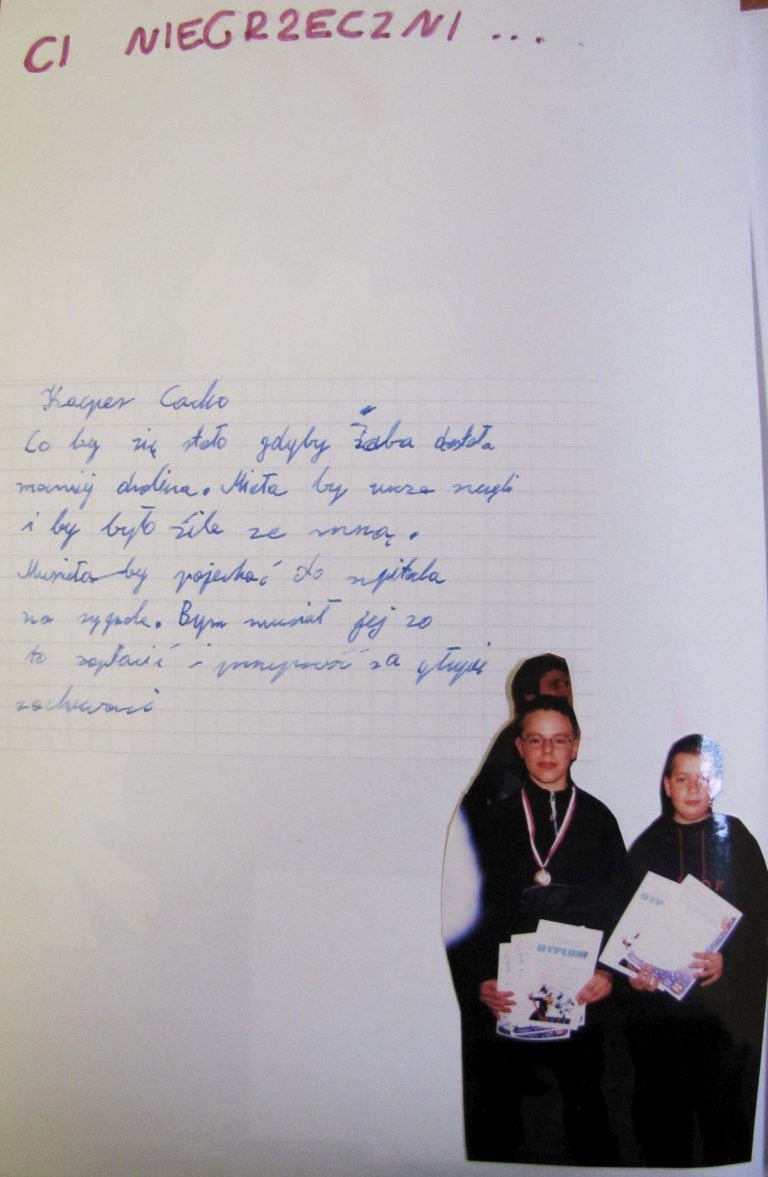 CI NIEGRZECZNI ...
Kacper Cacko
Co by się stało gdyby Żaba dostała
mocniej Miała by uraz nogi
i by było źle ze mną.
Musiała by pojechać do szpitala
na sygnale. Bym musiał jej za
to zapłacić i przeprosić za głupie
zachowanie
DYPLOM
DYP